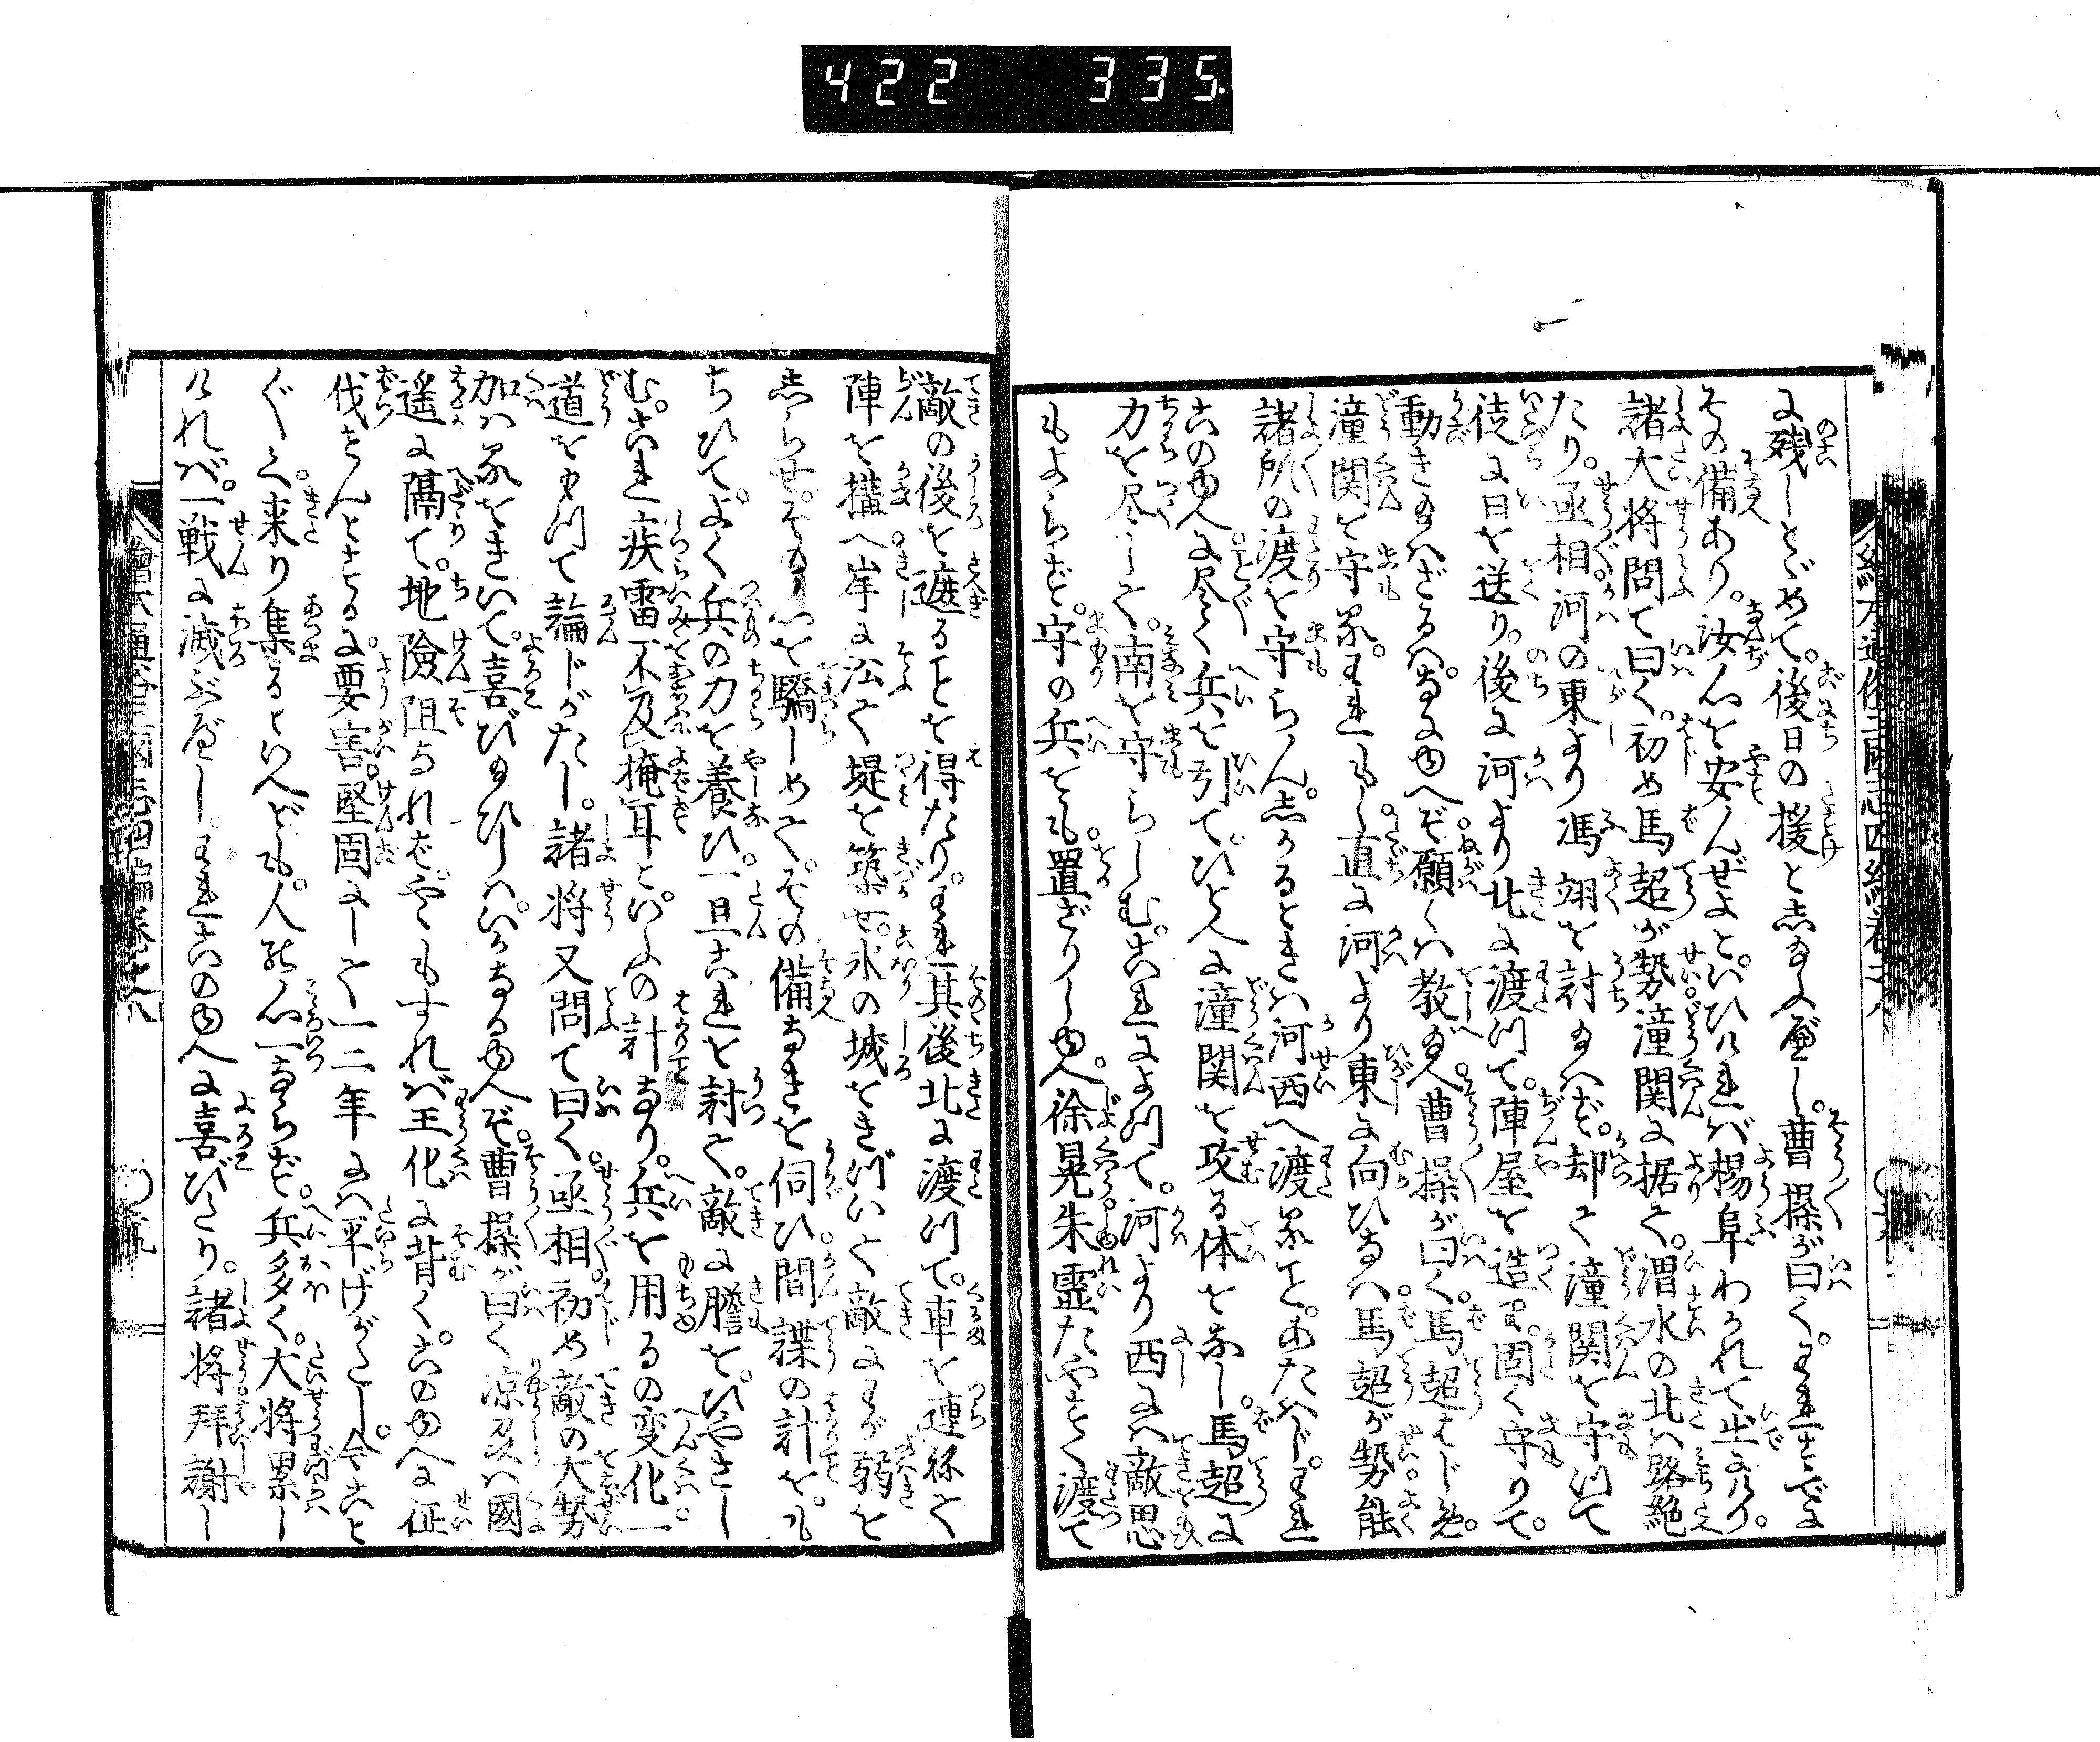 422 335
に残しとゞめて。後日の援となし給ふべし。曹操が曰く。われすでに
その備あり。汝心を安んぜよと。いひければ楊阜わかれて出にけり。
諸大将問て曰く。初め馬超が勢潼関に据て。渭水の北は路絶
たり。丞相河の東より馮翊を討給はず。却て潼関を守つて
徒に日を送り。後に河より北に渡つて。陣屋を造り。固く守りて。
動き給はざるは。なにゆへぞ願くは教給へ。曹操が曰く。馬超はじめ。
潼関を守る。われもし直に河より東に向ひなば馬超が勢能
諸所の渡を守らん。しかるときは河西へ渡ること。あたはじ。われ
このゆへに尽く兵を引て。ひとへに潼関を攻る体をなし。馬超に
力を尽して。南を守らしむ。これによつて。河より西には敵思
もよらず。守の兵をも。置ざりしゆへ。徐晃朱霊たやすく渡て
敵の後を遮ることを得たり。われ其後北に渡つて。車を連ねて
陣を構へ岸に沿て堤を築せ。氷の城をきづいて敵にわが弱を
しらせ。その心を驕しめて。その備なきを伺ひ間諜の計を。も
ちひて。よく兵の力を養ひ。一旦これを討て。敵に膽を。ひやさし
む。これ疾雷不及掩耳と。いふの計なり。兵を用るの変化一
道をもつて論じがたし。諸将又問て曰く。丞相初め敵の大勢
加はるをきいて。喜び給ひしは。いかなるゆへぞ。曹操が曰く涼州は國
遥に隔て。地險阻なれば。やゝもすれば王化に背く。このゆへに征
伐せんとするに。要害。堅固にして一二年には平げがたし。今こと
ぐく。来り集るといへども。人の心一ならず。兵多く。大将累し
ければ。一戦に滅ぶべし。われこのゆへに喜びたり。諸将拜謝し